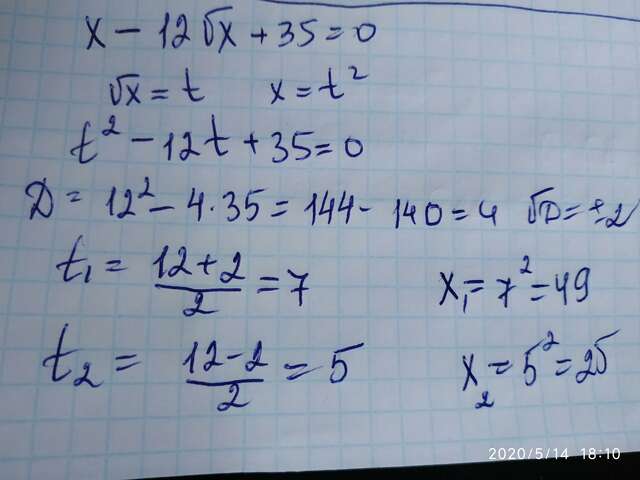 x - 12√x + 35 = 0
√x = t x = t²
t² - 12t + 35 = 0
D = 12² - 4·35 = 144 - 140 = 4 √D = ±2
t₁ = (12+2)/2 = 7 x₁ = 7² = 49
t₂ = (12-2)/2 = 5 x₂ = 5² = 25
2020/5/14 18:10